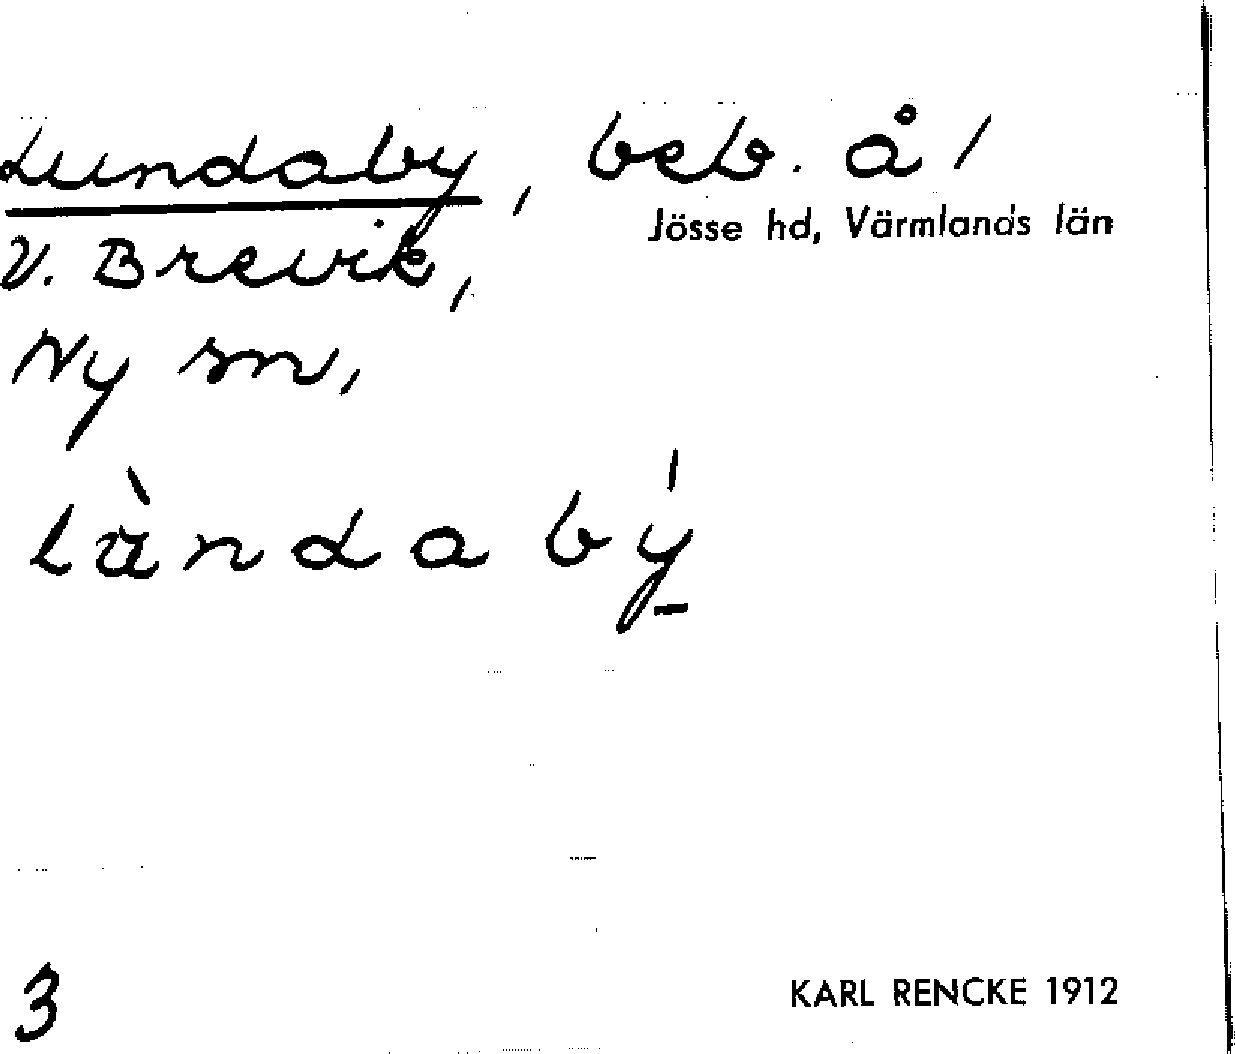 Lundaby, beb. å/
Jösse hd, Värmlands län
V. Brevik,
Ny sn,
lànda bý
3
KARL RENCKE 1912